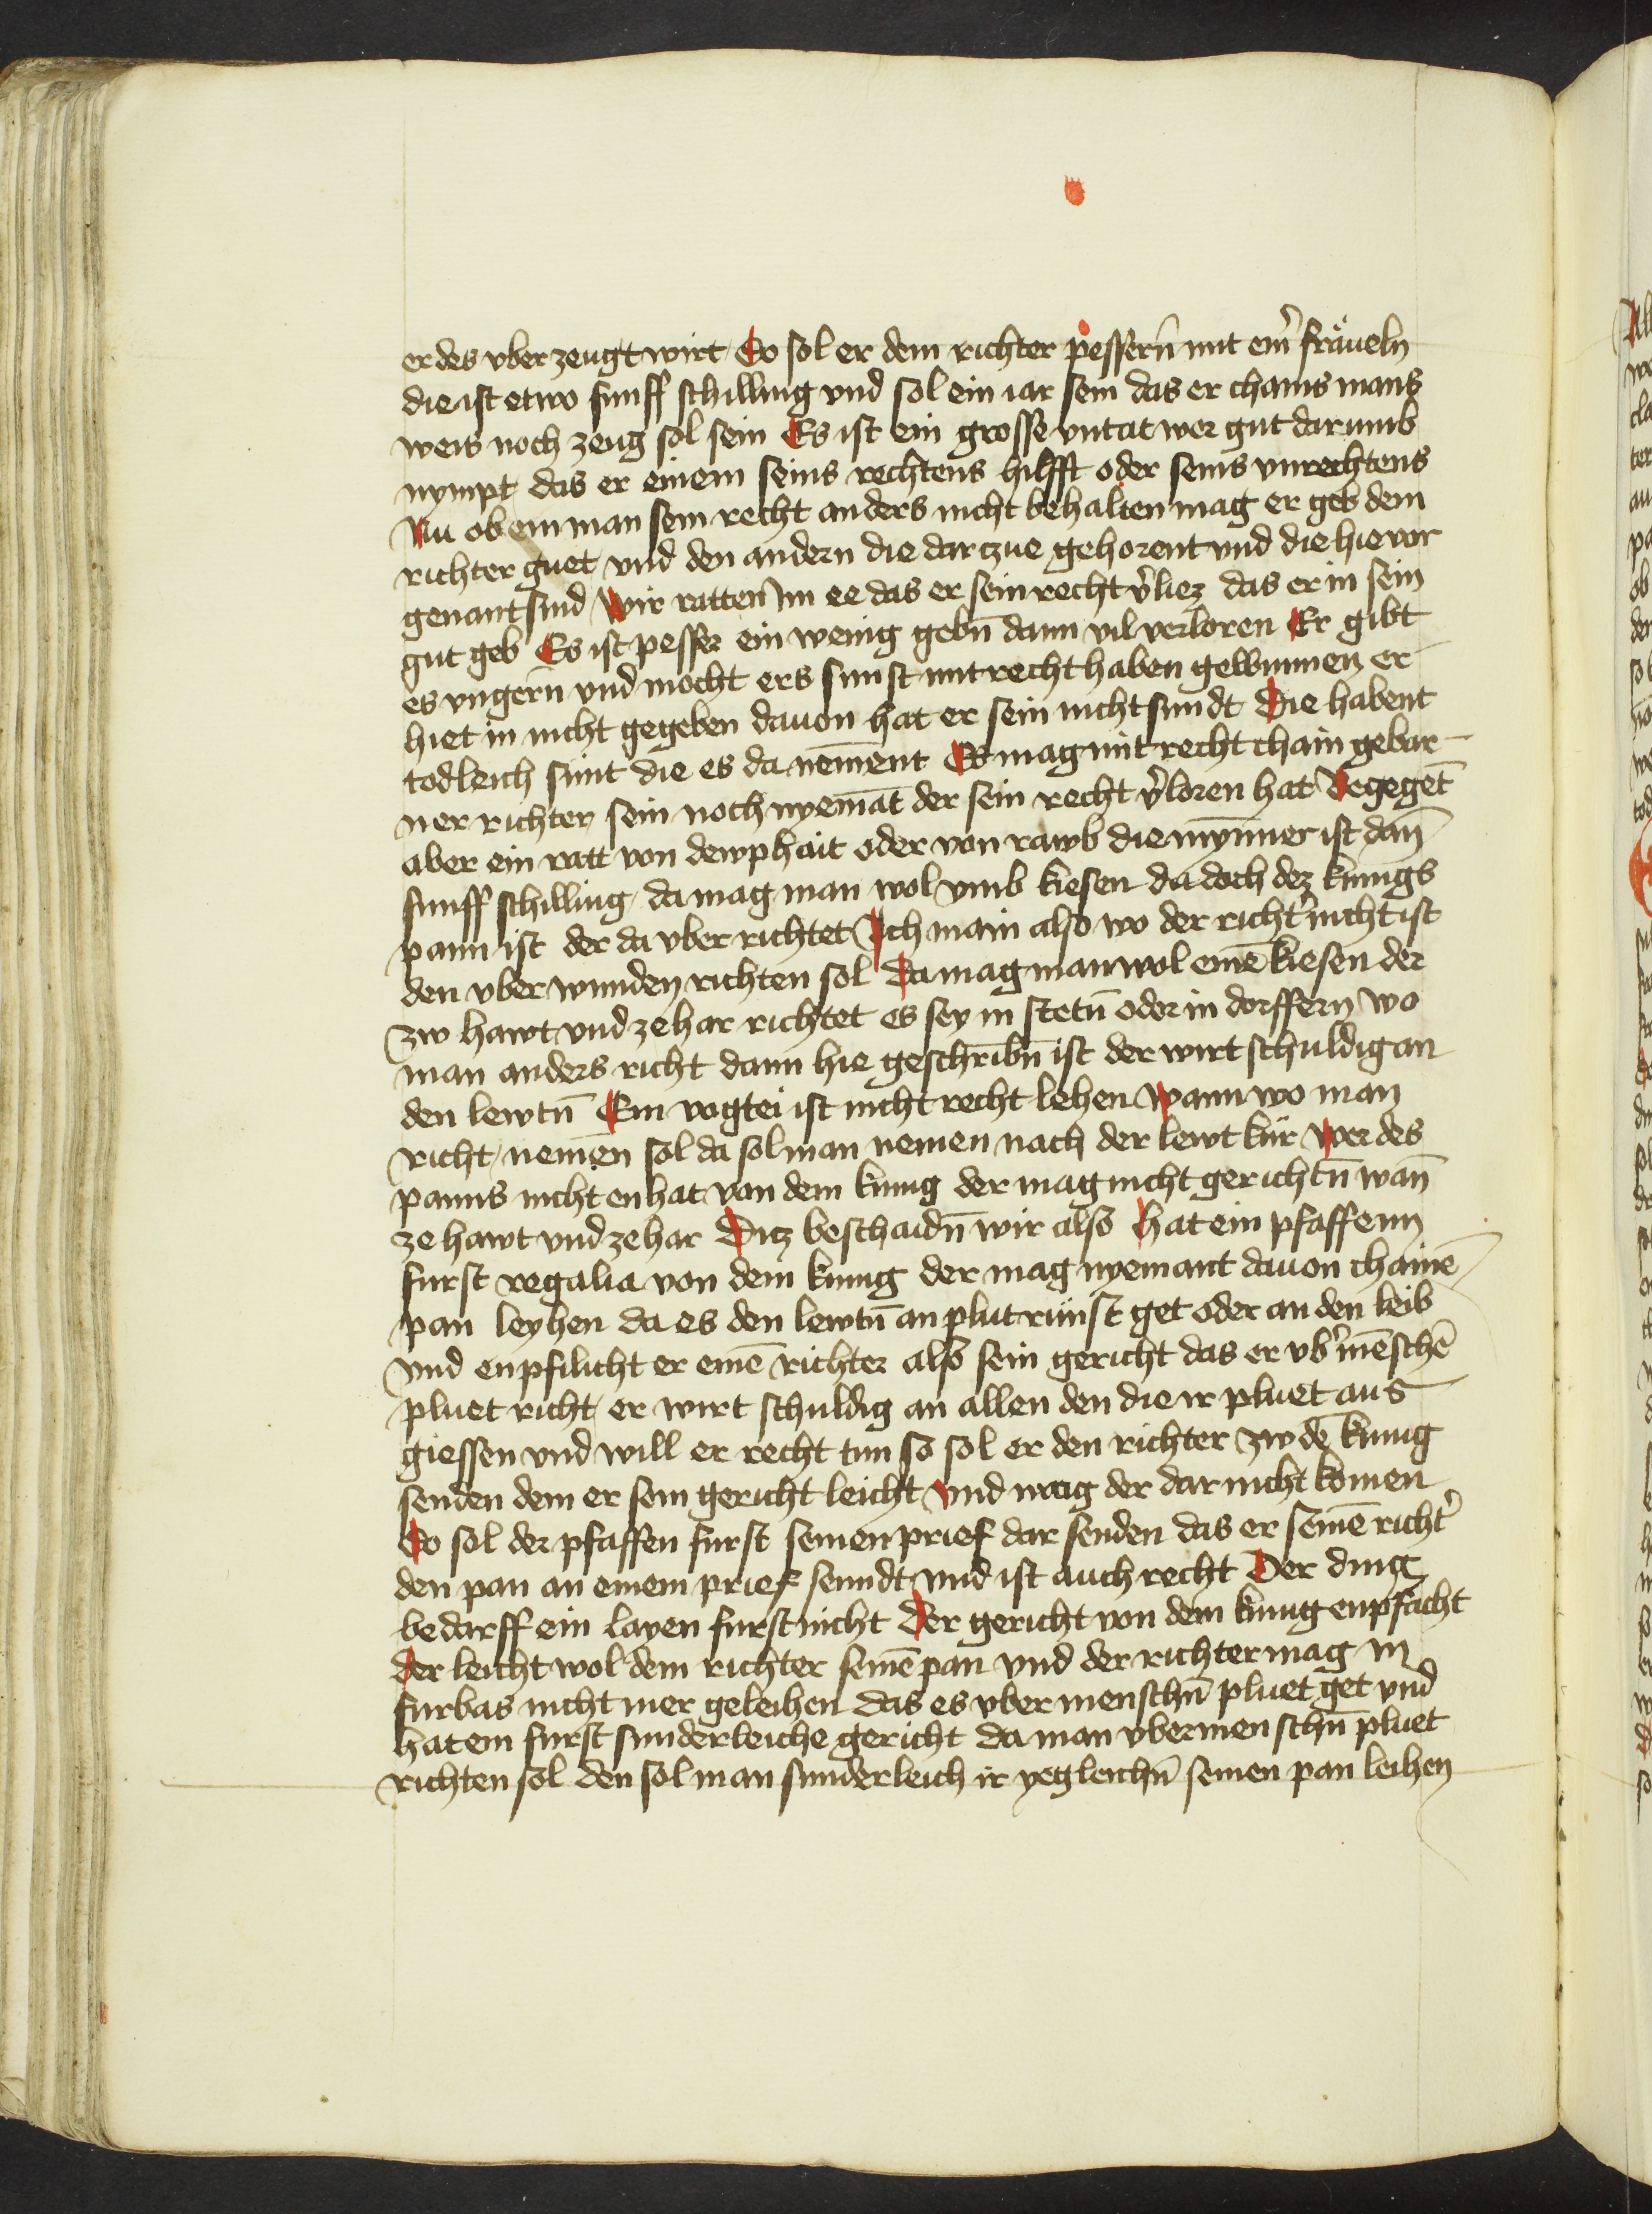 er des vber zeugt wirt So sol er dem richter pessern̄ mit em̄ fräueln
die ist etwo funff schilling vnd sol ein iar sein das er chains mans
weis noch zeug sol sein Es ist ein grosse vntat wer gut darumb
nympt das er einem seins rechtens hilfft oder seins vnrechtens
Nu ob ein man sein recht anders nicht behalten mag er geb dem
richter guet vnd den andern die dar czue gehorent vnd die hie vor
genant sind Wir ratten im ee das er sein recht v̓liez das er in sein
gut geb Es ist pesser ein wenig gebn̄ dann vil verloren Er gibt
es vngern̄ vnd mocht ers sunst mit recht haben gewunnen er
hiet in nicht gegeben dauon hat er sein nicht sundt Die habent
todleich sunt die es da nem̄ent Es mag mit recht chain gebar
ner richter sein noch nyemāt der sein recht v̓loren hat Begegēt
aber ein ratt von dewphait oder von rawb die myn̄ner ist dan̄
funff schilling da mag man wol vmb kiesen da doch dez kunigs
pann ist der da vber richtet Ich main also wo der richt̓ nicht ist
den vber wunden richten sol Da mag man wol einē kiesen der
zw hawt vnd ze har richtet es sey in stetn̄ oder in dorffern wo
man anders richt dann hie geschribn̄ ist der wirt schuldig an
den lewtn̄ Ein vogtei ist nicht recht lehen Wann wo man
richt nemen sol da sol man nemen nach der lewt kür Wer des
panns nicht en hat von dem kunig der mag nicht gerichtn̄ wan̄
ze hawt vnd ze har Diz beschaidn̄ wir also Hat ein pfaffenn
furst regalia von dem kunig der mag nyemant dauon chainē
pan leyhen da es den lewtn̄ an plutrünst get oder an den leib
vnd enpfilicht er einē richter also sein gericht das er vb̓ mēschē
pluet richt er wirt schuldig an allen den die ir pluet aus
giessen vnd will er recht tun so sol er den richter zw dē kunig
senden dem er sein gericht leicht vnd mag der dar nicht komen
So sol der pfaffen furst seinen prief dar senden das er seinē richt̓
den pan an einem prief senndt vnd ist auch recht Der ding
bedarff ein layen furst nicht Der gericht von dem kunig enpfächt
Der leicht wol dem richter seinē pan vnd der richter mag in
furbas nicht mer geleihen das es vber menschn̄ pluet get vnd
hat ein furst sunderleiche gericht da man vber menschn̄ pluet
richten sol den sol man sunderleich ir yegleichn̄ seinen pan leihen